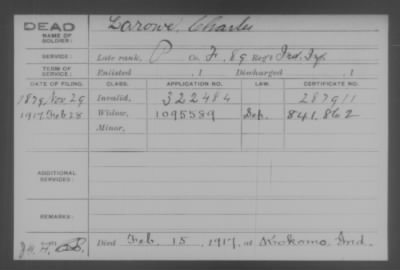 DEAD
NAME OF SOLDIER:
Larowe, Charles
SERVICE:
Late rank, P Co. F, 89 Reg't Ind. Inf.
TERM OF SERVICE:
Enlisted , 1 Discharged , 1
DATE OF FILING. CLASS. APPLICATION NO. LAW. CERTIFICATE NO.
1879, Nov. 29 Invalid, 322484 287911
1917, Feb 28 Widow, 1095589 Sep. 841.862
Minor,
ADDITIONAL SERVICES:
REMARKS:
Died Feb. 15, 1917, at Kokomo, Ind.